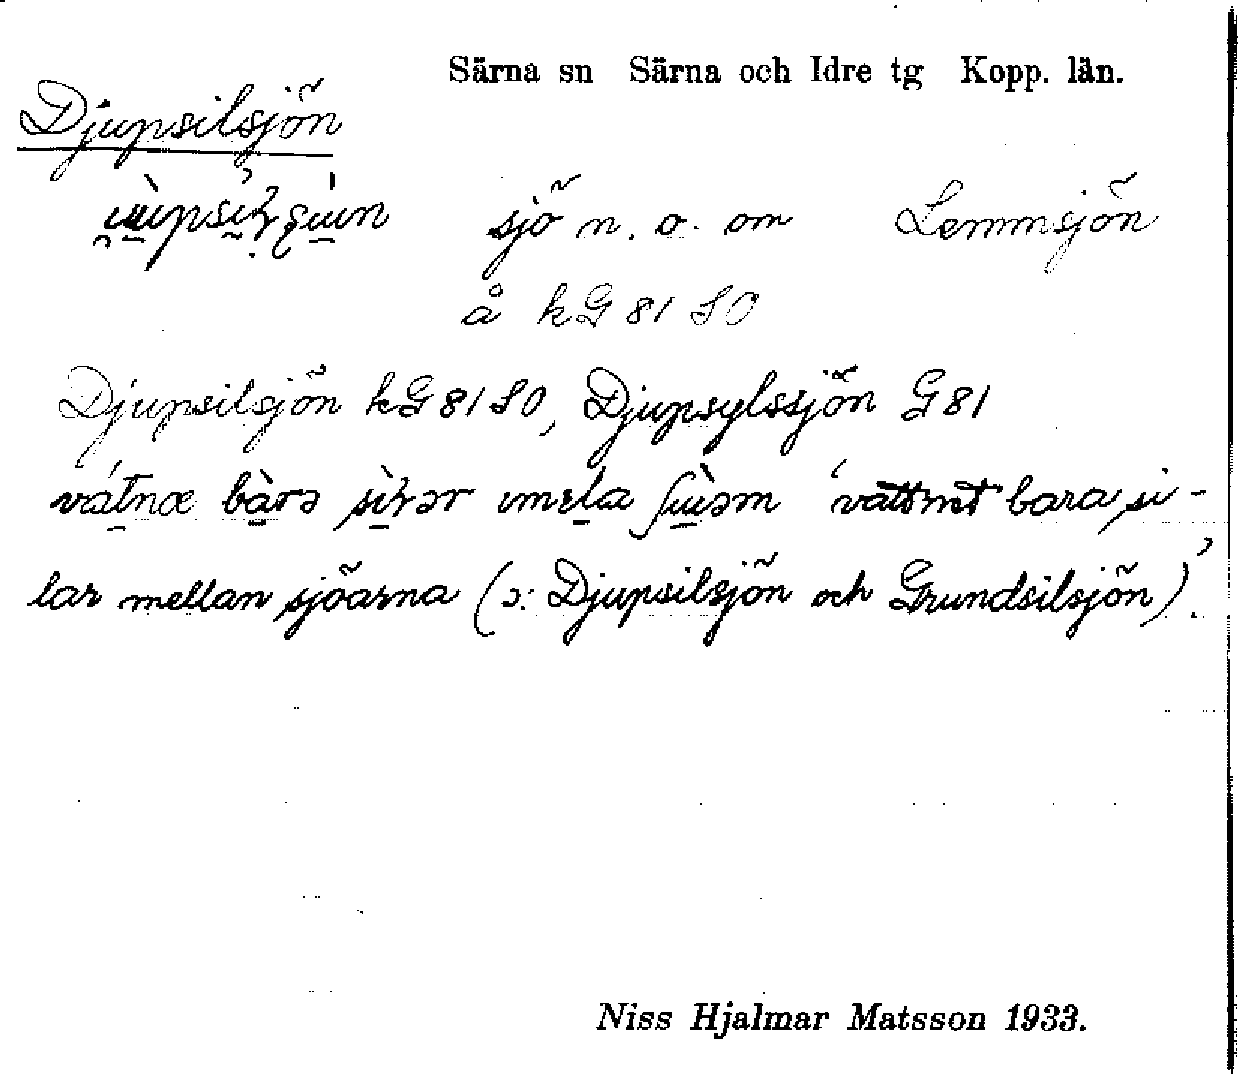 Särna sn Särna och Idre tg Kopp. län.
Djupsilsjön
sjö n. o. om Lemmsjön
å kG 81 SO
Djupsilsjön kG 81 SO, Djupsylssjön G 81
'vattnet bara si-
lar mellan sjöarna (ɔ: Djupsilsjön och Grundsilsjön)'.
Niss Hjalmar Matsson 1933.